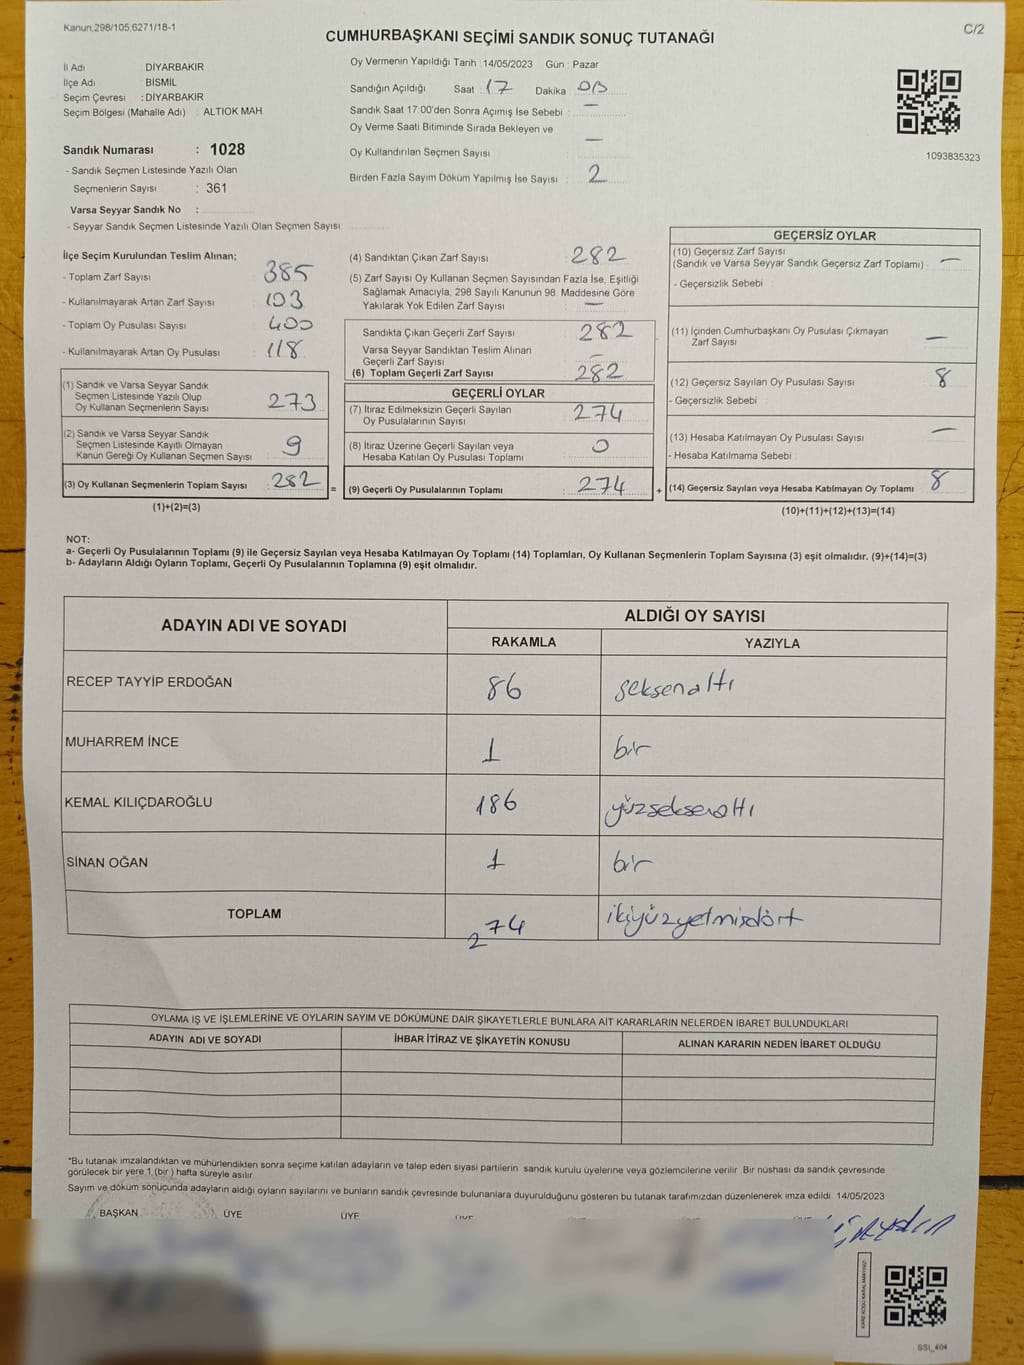 Kanun:298/105;6271/18-1
C/2
CUMHURBAŞKANI SEÇİMİ SANDIK SONUÇ TUTANAĞI
İl Adı : DİYARBAKIR
İlçe Adı : BİSMİL
Seçim Çevresi : DİYARBAKIR
Seçim Bölgesi (Mahalle Adı) : ALTIOK MAH
Sandık Numarası : 1028
- Sandık Seçmen Listesinde Yazılı Olan
Seçmenlerin Sayısı : 361
Varsa Seyyar Sandık No :
- Seyyar Sandık Seçmen Listesinde Yazılı Olan Seçmen Sayısı:
Oy Vermenin Yapıldığı Tarih : 14/05/2023 Gün : Pazar
Sandığın Açıldığı Saat : 17 Dakika :
Sandık Saat 17:00'den Sonra Açımış İse Sebebi : —
Oy Verme Saati Bitiminde Sırada Bekleyen ve
Oy Kullandırılan Seçmen Sayısı : —
Birden Fazla Sayım Döküm Yapılmış İse Sayısı : 2
1093835323
İlçe Seçim Kurulundan Teslim Alınan;
- Toplam Zarf Sayısı : 385
- Kullanılmayarak Artan Zarf Sayısı : 103
- Toplam Oy Pusulası Sayısı : 400
- Kullanılmayarak Artan Oy Pusulası : 118
(1) Sandık ve Varsa Seyyar Sandık
Seçmen Listesinde Yazılı Olup
Oy Kullanan Seçmenlerin Sayısı : 273
(2) Sandık ve Varsa Seyyar Sandık
Seçmen Listesinde Kayıtlı Olmayan
Kanun Gereği Oy Kullanan Seçmen Sayısı : 9
(3) Oy Kullanan Seçmenlerin Toplam Sayısı : 282 =
(1)+(2)=(3)
(4) Sandıktan Çıkan Zarf Sayısı : 282
(5) Zarf Sayısı Oy Kullanan Seçmen Sayısından Fazla İse, Eşitliği
Sağlamak Amacıyla, 298 Sayılı Kanunun 98. Maddesine Göre
Yakılarak Yok Edilen Zarf Sayısı : —
Sandıkta Çıkan Geçerli Zarf Sayısı : 282
Varsa Seyyar Sandıktan Teslim Alınan
Geçerli Zarf Sayısı : —
(6) Toplam Geçerli Zarf Sayısı : 282
GEÇERLİ OYLAR
(7) İtiraz Edilmeksizin Geçerli Sayılan
Oy Pusulalarının Sayısı : 274
(8) İtiraz Üzerine Geçerli Sayılan veya
Hesaba Katılan Oy Pusulası Toplamı : 0
(9) Geçerli Oy Pusulalarının Toplamı : 274 +
GEÇERSİZ OYLAR
(10) Geçersiz Zarf Sayısı
(Sandık ve Varsa Seyyar Sandık Geçersiz Zarf Toplamı) : —
- Geçersizlik Sebebi :
(11) İçinden Cumhurbaşkanı Oy Pusulası Çıkmayan
Zarf Sayısı : —
(12) Geçersiz Sayılan Oy Pusulası Sayısı : 8
- Geçersizlik Sebebi :
(13) Hesaba Katılmayan Oy Pusulası Sayısı : —
- Hesaba Katılmama Sebebi :
(14) Geçersiz Sayılan veya Hesaba Katılmayan Oy Toplamı : 8
(10)+(11)+(12)+(13)=(14)
NOT:
a- Geçerli Oy Pusulalarının Toplamı (9) ile Geçersiz Sayılan veya Hesaba Katılmayan Oy Toplamı (14) Toplamları, Oy Kullanan Seçmenlerin Toplam Sayısına (3) eşit olmalıdır. (9)+(14)=(3)
b- Adayların Aldığı Oyların Toplamı, Geçerli Oy Pusulalarının Toplamına (9) eşit olmalıdır.
ADAYIN ADI VE SOYADI
ALDIĞI OY SAYISI
RAKAMLA YAZIYLA
RECEP TAYYİP ERDOĞAN 86 seksenaltı
MUHARREM İNCE 1 bir
KEMAL KILIÇDAROĞLU 186 yüzseksenaltı
SİNAN OĞAN 1 bir
TOPLAM 274 ikiyüzyetmişdört
OYLAMA İŞ VE İŞLEMLERİNE VE OYLARIN SAYIM VE DÖKÜMÜNE DAİR ŞİKAYETLERLE BUNLARA AİT KARARLARIN NELERDEN İBARET BULUNDUKLARI
ADAYIN ADI VE SOYADI İHBAR İTİRAZ VE ŞİKAYETİN KONUSU ALINAN KARARIN NEDEN İBARET OLDUĞU
*Bu tutanak imzalandıktan ve mühürlendikten sonra seçime katılan adayların ve talep eden siyasi partilerin sandık kurulu üyelerine veya gözlemcilerine verilir. Bir nüshası da sandık çevresinde
görülecek bir yere 1 (bir ) hafta süreyle asılır.
Sayım ve döküm sonucunda adayların aldığı oyların sayılarını ve bunların sandık çevresinde bulunanlara duyurulduğunu gösteren bu tutanak tarafımızdan düzenlenerek imza edildi. 14/05/2023
BAŞKAN ÜYE ÜYE ÜYE
SSI_404